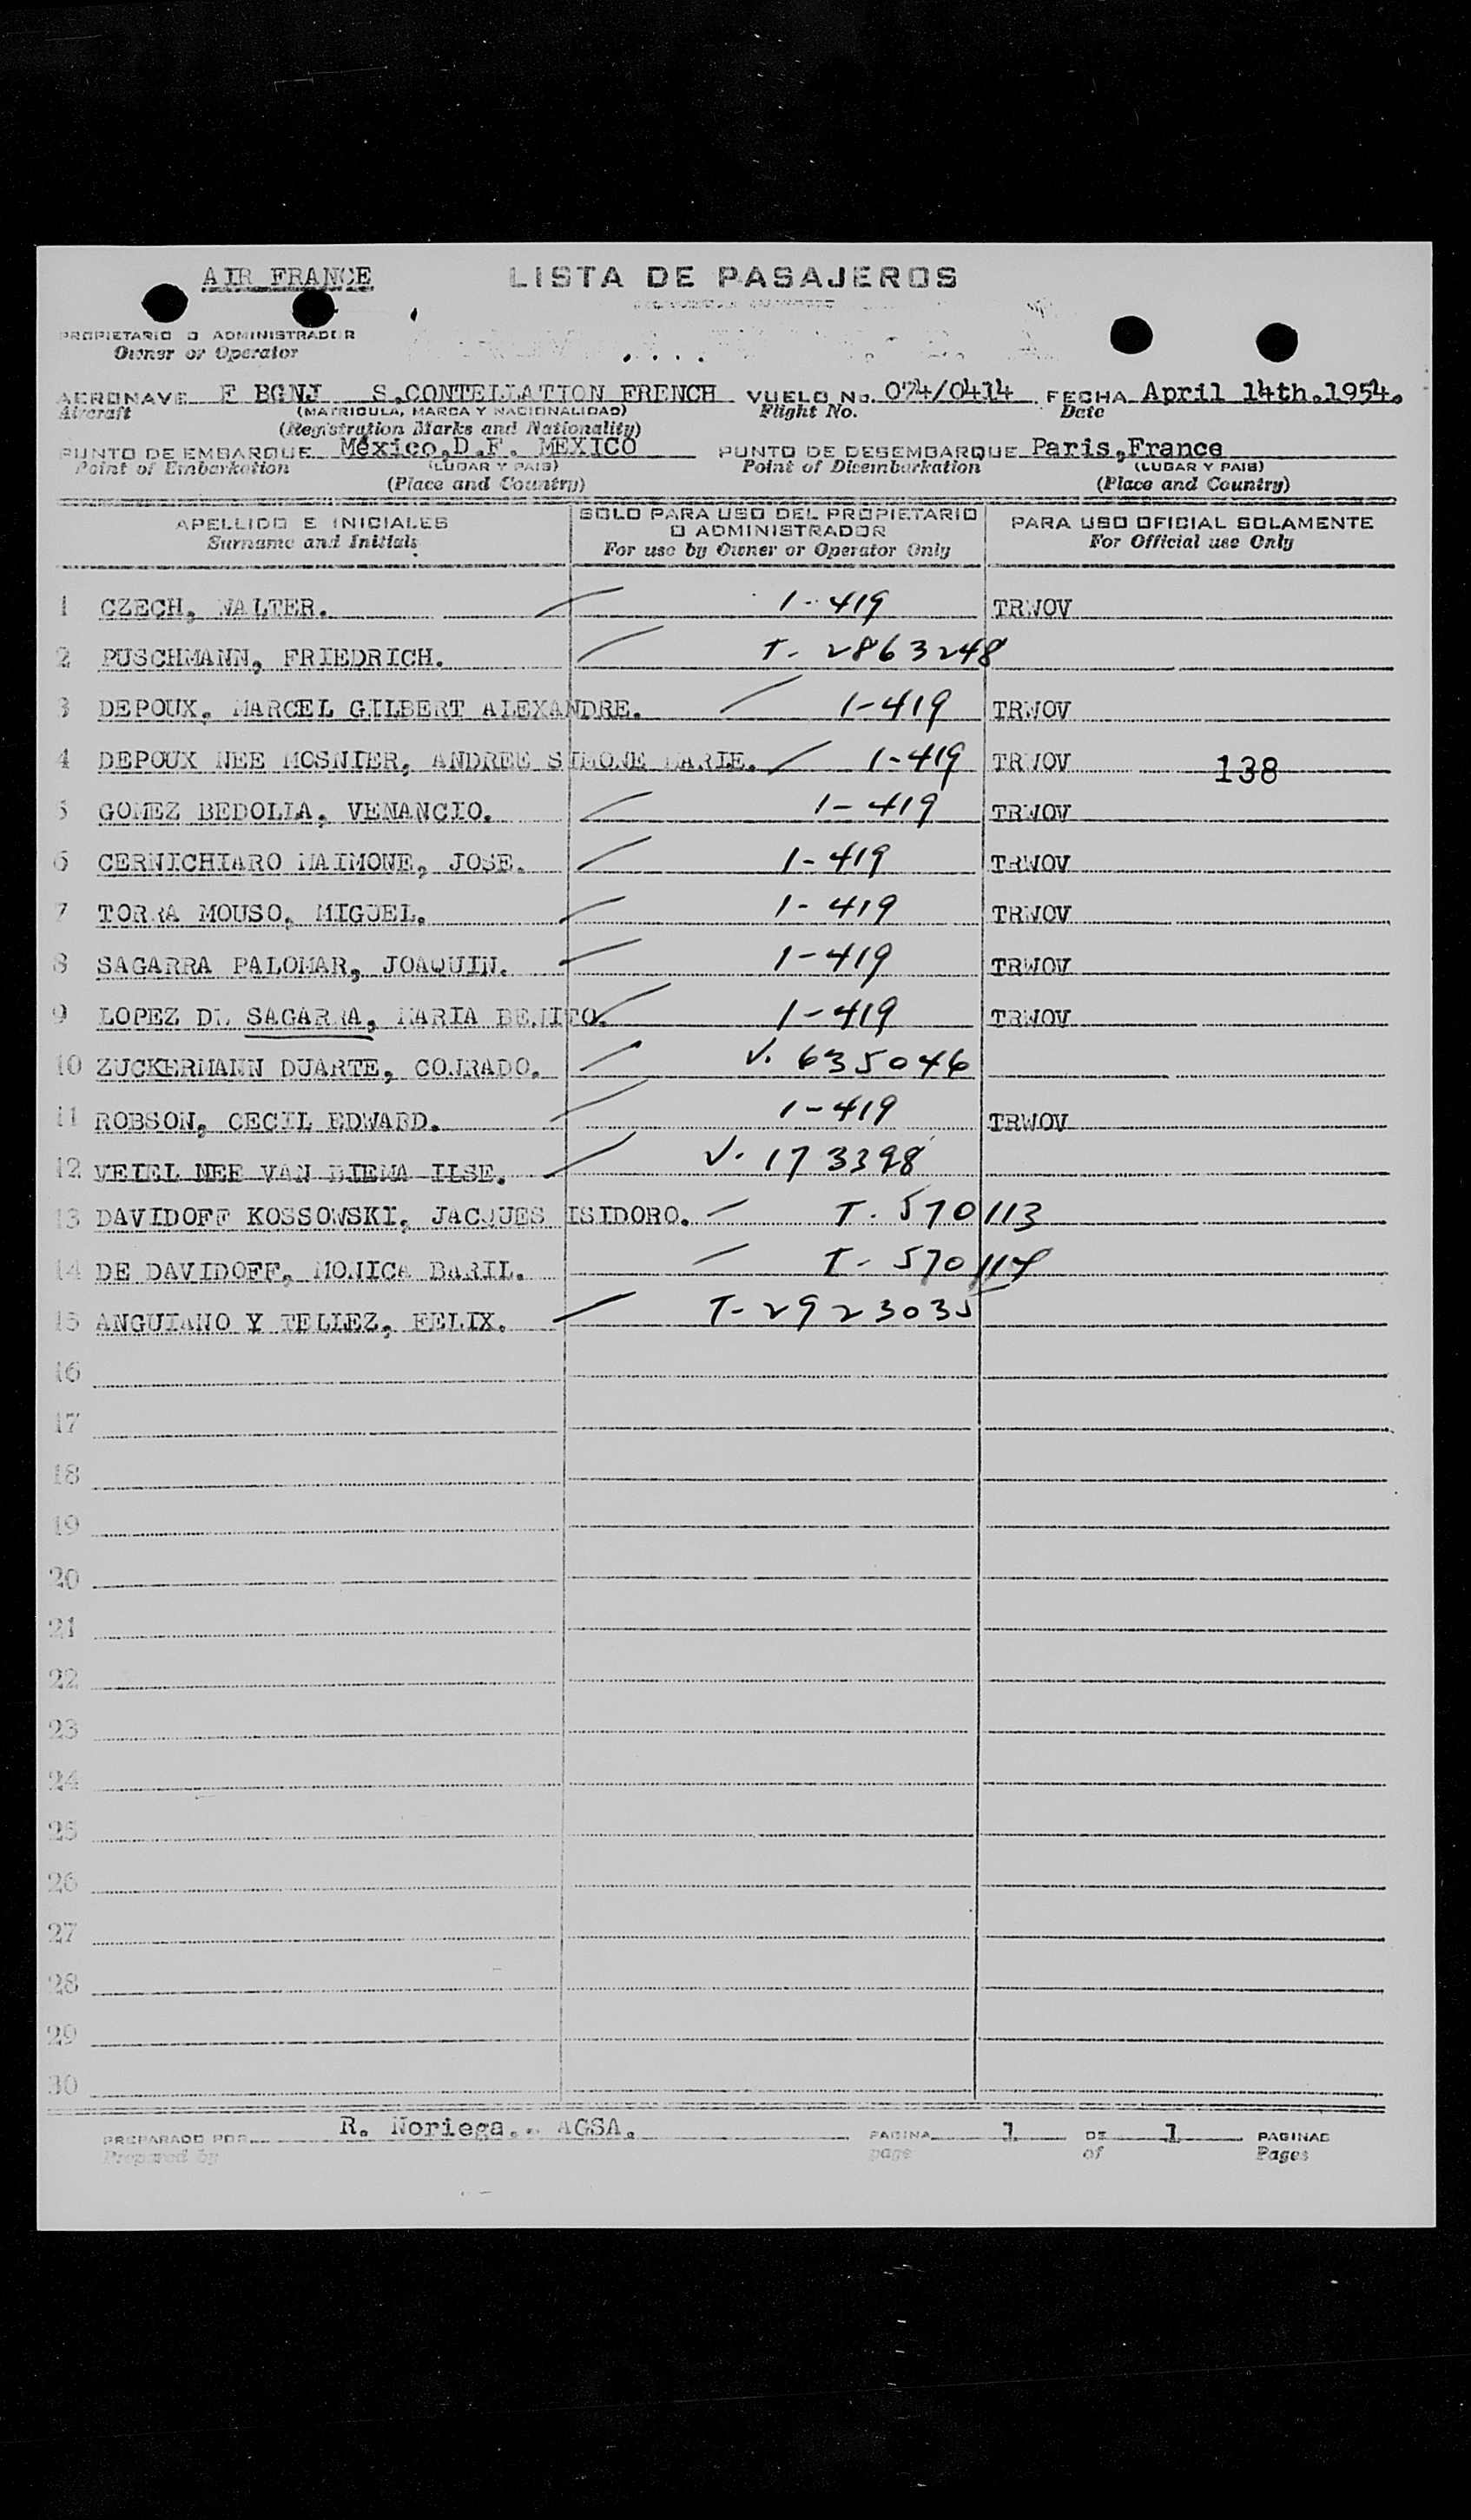 AIR FRANCE
LISTA DE PASAJEROS
PROPIETARIO O ADMINISTRADOR
Owner or Operator
AERONAVE F BGNJ S.CONTELLATION FRENCH VUELO No. 074/0414 FECHA April 14th.1954.
Aircraft (MATRICULA, MARCA Y NACIONALIDAD) Flight No. Date
(Registration Marks and Nationality)
PUNTO DE EMBARQUE México,D.F. MEXICO PUNTO DE DESEMBARQUE Paris,France
Point of Embarkation (LUGAR Y PAIS) Point of Disembarkation (LUGAR Y PAIS)
(Place and Country) (Place and Country)
APELLIDO E INICIALES SOLO PARA USO DEL PROPIETARIO O ADMINISTRADOR PARA USO OFICIAL SOLAMENTE
Surname and Initials For use by Owner or Operator Only For Official use Only
1 CZECH, WALTER. 1-419 TRWOV
2 PUSCHMANN, FRIEDRICH. T- 2863248
3 DEPOUX, MARCEL GILBERT ALEXANDRE. 1-419 TRWOV
4 DEPOUX NEE MOSNIER, ANDREE SIMONE MARIE. 1-419 TRWOV 138
5 GOMEZ BEDOLLA, VENANCIO. 1-419 TRWOV
6 CERNICHIARO MAIMONE, JOSE. 1-419 TRWOV
7 TORRA MOUSO, MIGUEL. 1-419 TRWOV
8 SAGARRA PALOMAR, JOAQUIN. 1-419 TRWOV
9 LOPEZ DE SAGARRA, MARIA BENITO. 1-419 TRWOV
10 ZUCKERMANN DUARTE, CONRADO. V. 635046
11 ROBSON, CECIL EDWARD. 1-419 TRWOV
12 VEIEL NEE VAN BIEMA ILSE. V. 173398
13 DAVIDOFF KOSSOWSKI, JACQUES ISIDORO. T. 570113
14 DE DAVIDOFF, MONICA BARIL. T- 570114
15 ANGUIANO Y TELLEZ, FELIX. T-2923035
16
17
18
19
20
21
22
23
24
25
26
27
28
29
30
PREPARADO POR R. Noriega.. AGSA. PAGINA 1 DE 1 PAGINAS
Prepared by page of Pages